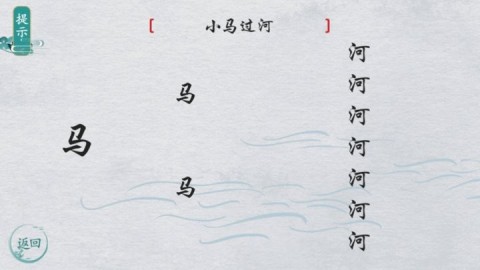 提示
[ 小马过河 ]
河
河
马
河
马
河
河
马
河
河
返回